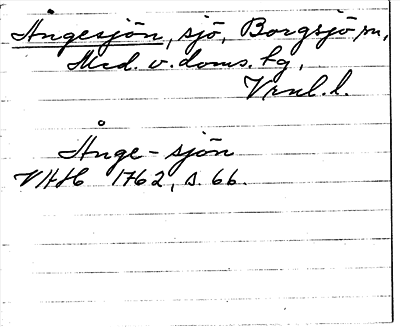 Ångesjön, sjö, Borgsjö sn,
Med. v. doms. tg,
Vrnl. l.
Ånge-sjön
VHH 1762, s. 66.